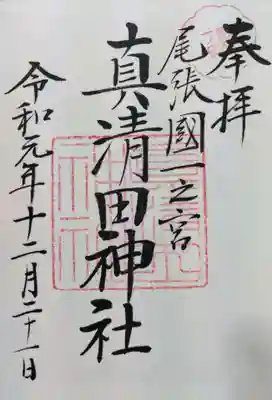 奉拝
尾張國一之宮
真清田神社
令和元年十二月二十一日